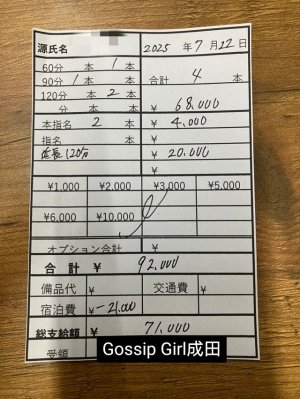 源氏名 2025年7月22日
60分 本 1 本
90分 1 本 合計 4 本
120分 本 2 本
分 本 ¥ 68,000
本指名 2 本 ¥ 4,000
指名 本 ¥
延長120分 ¥ 20,000
¥1,000 ¥2,000 ¥3,000 ¥5,000
¥6,000 ¥10,000
オプション合計 ¥
合計 ¥ 92,000
備品代 ¥ 交通費 ¥
宿泊費 ¥ -21,000
総支給額 ¥ 71,000
受領
Gossip Girl成田